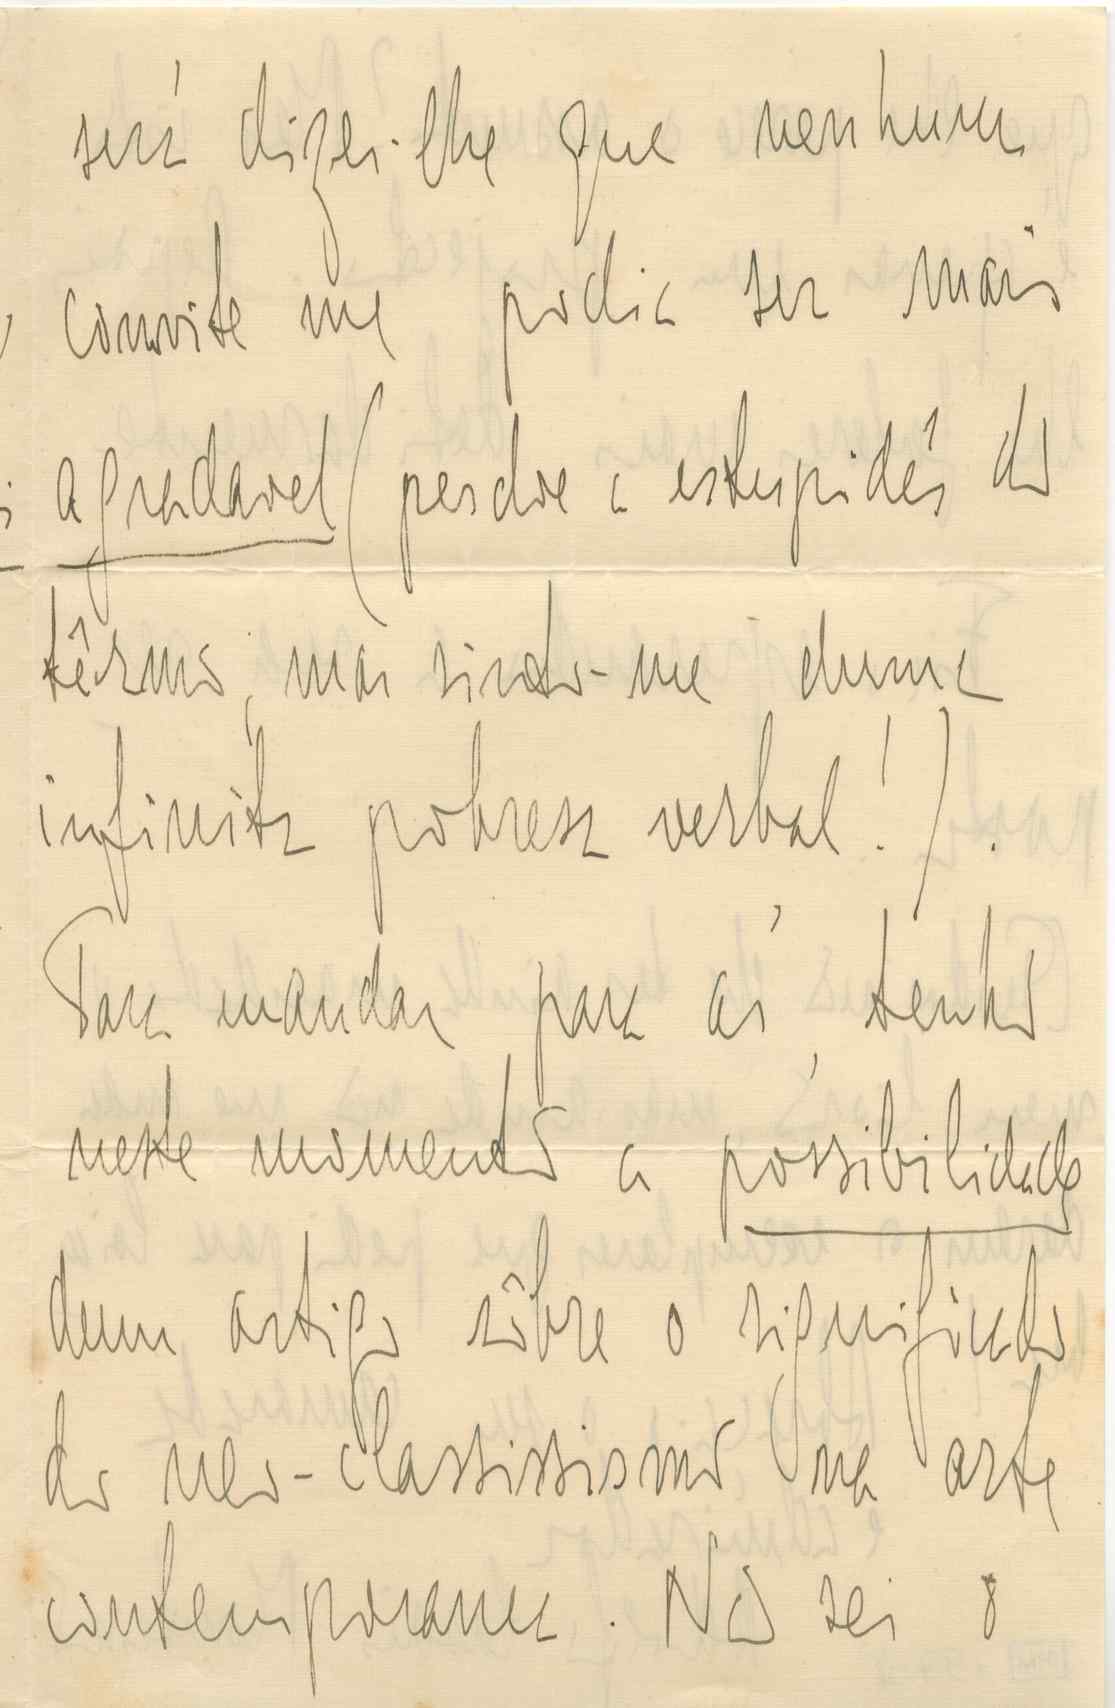 será dizer-lhe que nenhum
convite me podia ser mais
agradavel (perdoe a estupidés do
têrmo, mas sinto-me duma
infinita pobresa verbal!).
Para mandar para aí, tenho
neste momento a possibilidade
dum artigo sôbre o significado
do neo-classissismo na arte
contemporanea. Não sei o